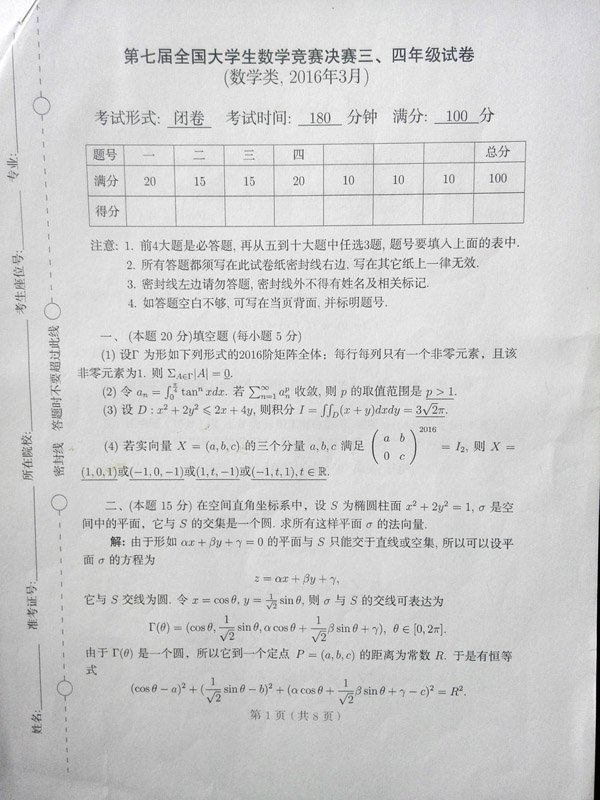 第七届全国大学生数学竞赛决赛三、四年级试卷
(数学类, 2016年3月)
考试形式: 闭卷 考试时间: 180 分钟 满分: 100 分
题号 一 二 三 四 总分
满分 20 15 15 20 10 10 10 100
得分
注意: 1. 前4大题是必答题, 再从五到十大题中任选3题, 题号要填入上面的表中.
2. 所有答题都须写在此试卷纸密封线右边, 写在其它纸上一律无效.
3. 密封线左边请勿答题, 密封线外不得有姓名及相关标记.
4. 如答题空白不够, 可写在当页背面, 并标明题号.
一、(本题 20 分)填空题 (每小题 5 分)
(1) 设Γ 为形如下列形式的2016阶矩阵全体: 每行每列只有一个非零元素, 且该
非零元素为1. 则 Σ_{A∈Γ}|A| = 0.
(2) 令 a_n = ∫_0^{π/4} tan^n xdx. 若 Σ_{n=1}^∞ a_n^p 收敛, 则 p 的取值范围是 p > 1.
(3) 设 D : x² + 2y² ⩽ 2x + 4y, 则积分 I = ∬_D(x + y)dxdy = 3√2π.
(4) 若实向量 X = (a, b, c) 的三个分量 a, b, c 满足 (a b; 0 c)^2016 = I₂, 则 X =
(1,0,1)或(−1,0,−1)或(1,t,−1)或(−1,t,1), t ∈ ℝ.
二、(本题 15 分) 在空间直角坐标系中, 设 S 为椭圆柱面 x² + 2y² = 1, σ 是空
间中的平面, 它与 S 的交集是一个圆. 求所有这样平面 σ 的法向量.
解: 由于形如 αx + βy + γ = 0 的平面与 S 只能交于直线或空集, 所以可以设平
面 σ 的方程为
z = αx + βy + γ,
它与 S 交线为圆. 令 x = cos θ, y = 1/√2 sin θ, 则 σ 与 S 的交线可表达为
Γ(θ) = (cos θ, 1/√2 sin θ, α cos θ + 1/√2 β sin θ + γ), θ ∈ [0, 2π].
由于 Γ(θ) 是一个圆, 所以它到一个定点 P = (a, b, c) 的距离为常数 R. 于是有恒等
式
(cos θ − a)² + (1/√2 sin θ − b)² + (α cos θ + 1/√2 β sin θ + γ − c)² = R².
第 1 页 ( 共 8 页 )
专业:
考生座位号:
所在院校:
准考证号:
姓名:
密封线 答题时不要超过此线